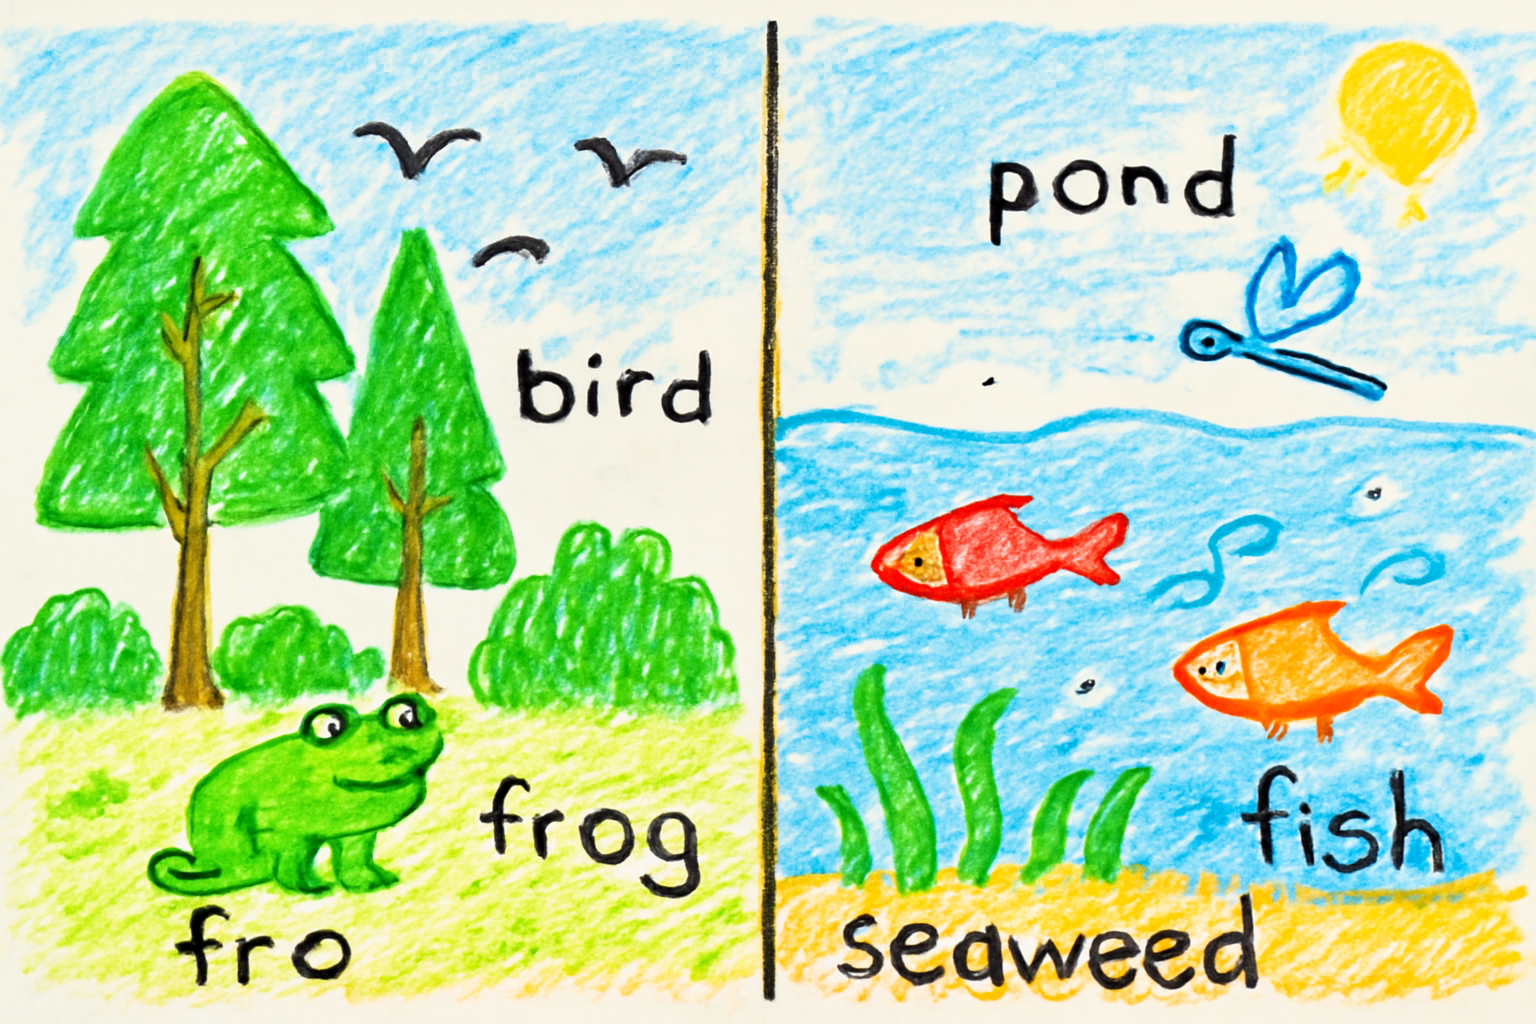 bird
frog
fro
pond
fish
seaweed